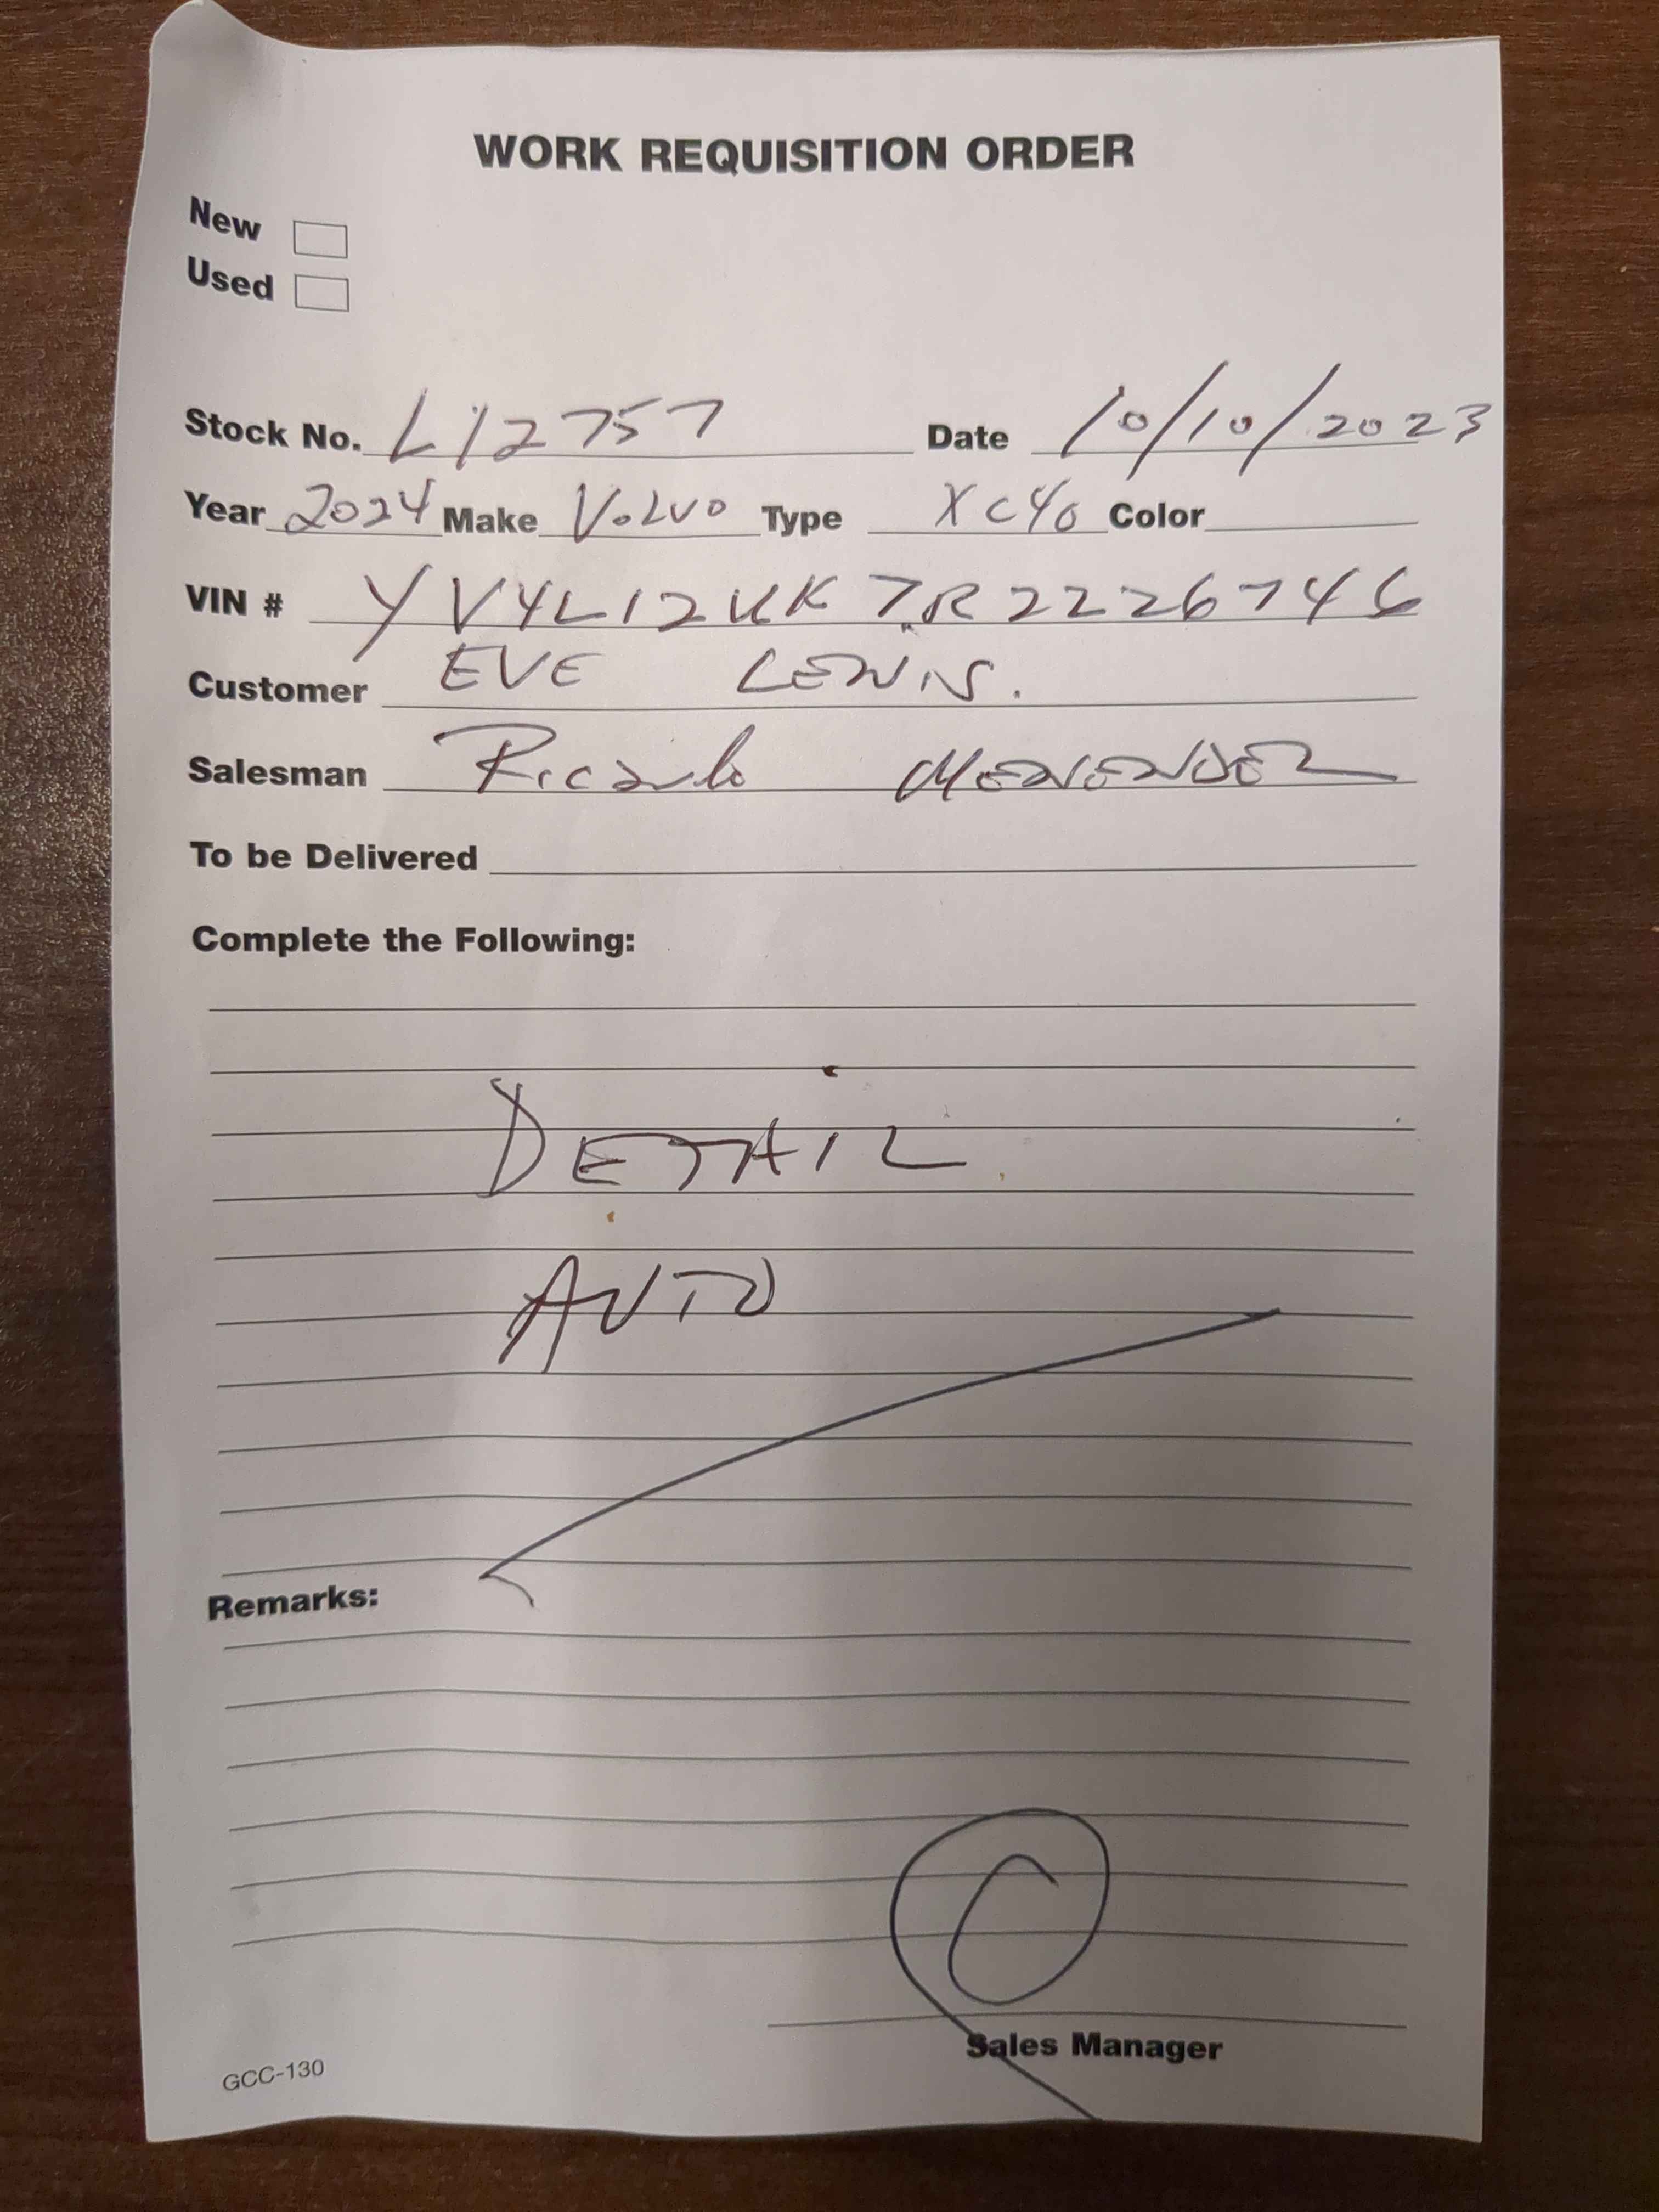 WORK REQUISITION ORDER
New
Used
Stock No. L12757 Date 10/10/2023
Year 2024 Make Volvo Type XC40 Color
VIN # YV4L12UK7R2226746
Customer EVE LEWIS.
Salesman Ricardo MENENDEZ
To be Delivered
Complete the Following:
DETAIL
AUTO
Remarks:
Sales Manager
GCC-130